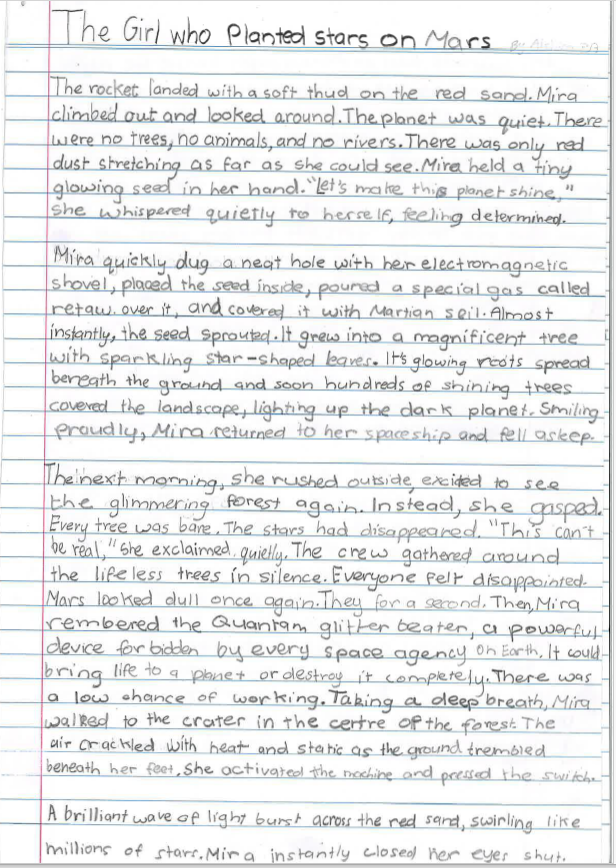 The Girl who Planted stars on Mars
The rocket landed with a soft thud on the red sand. Mira
climbed out and looked around. The planet was quiet. There
were no trees, no animals, and no rivers. There was only red
dust stretching as far as she could see. Mira held a tiny
glowing seed in her hand. "Let's make this planet shine,"
she whispered quietly to herself, feeling determined.
Mira quickly dug a neat hole with her electromagnetic
shovel, placed the seed inside, poured a special gas called
retaw. over it, and covered it with Martian soil. Almost
instantly, the seed sprouted. It grew into a magnificent tree
with sparkling star-shaped leaves. It's glowing roots spread
beneath the ground and soon hundreds of shining trees
covered the landscape, lighting up the dark planet. Smiling
proudly, Mira returned to her spaceship and fell asleep.
The next morning, she rushed outside, excited to see
the glimmering forest again. Instead, she gasped.
Every tree was bare. The stars had disappeared. "This can't
be real," she exclaimed quietly. The crew gathered around
the lifeless trees in silence. Everyone felt disappointed.
Mars looked dull once again. They for a second. Then, Mira
rembered the Quantam glitter beater, a powerful
device forbidden by every space agency on Earth. It could
bring life to a planet or destroy it completely. There was
a low chance of working. Taking a deep breath, Mira
walked to the crater in the certre of the forest. The
air crackled with heat and static as the ground trembled
beneath her feet. She activated the machine and pressed the switch.
A brilliant wave of light burst across the red sand, swirling like
millions of stars. Mira instantly closed her eyes shut.